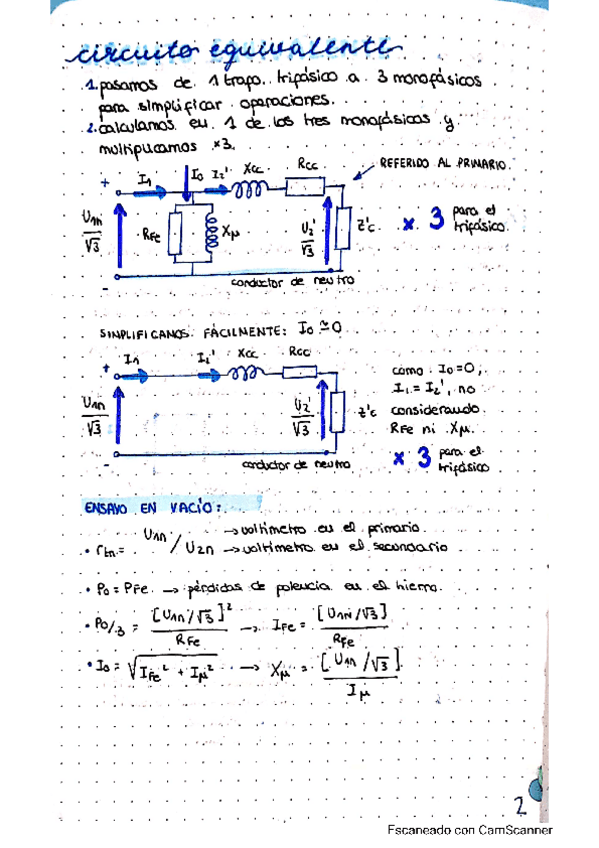 circuito equivalente
1. pasamos de 1 trafo. trifásico a 3 monofásicos
para simplificar operaciones.
2. calculamos en 1 de los tres monofásicos y
multiplicamos x3.
I1 I0 I2' Xcc Rcc REFERIDO AL PRIMARIO.
+
U1n/√3 RFe Xμ U2'/√3 Z'c x 3 para el trifásico.
-
conductor de neutro
SIMPLIFICANOS FÁCILMENTE: I0 ≅ 0
+ I1 I2' Xcc Rcc
U1n/√3 U2'/√3 Z'c
-
conductor de neutro
como I0=0,
I1 = I2', no
considerando
RFe ni Xμ.
x 3 para el trifásico
ENSAYO EN VACÍO:
• rtn = U1n / U2n → voltímetro en el primario
→ voltímetro en el secundario
• P0 = PFe → pérdidas de potencia en el hierro.
• P0/3 = [U1n/√3]² / RFe → IFe = [U1n/√3] / RFe
• I0 = √IFe² + Iμ² → Xμ = [U1n/√3] / Iμ
2
Escaneado con CamScanner